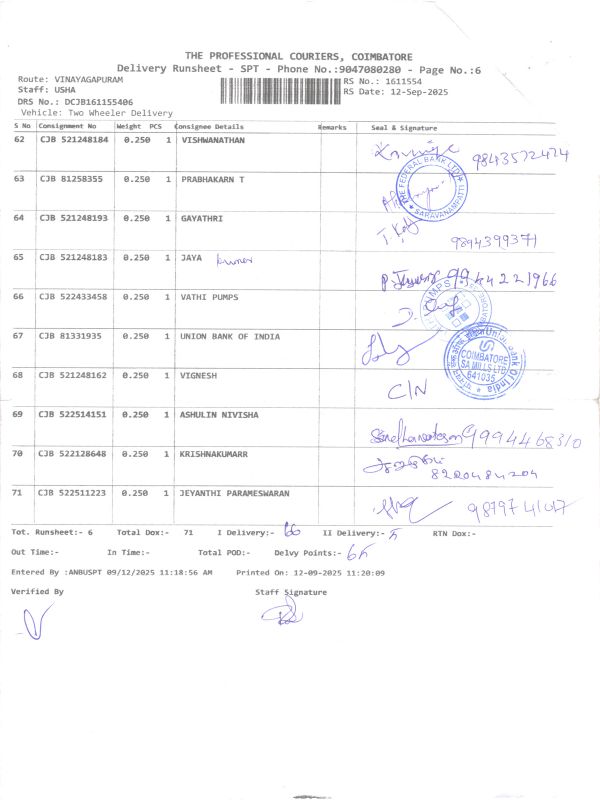 THE PROFESSIONAL COURIERS, COIMBATORE
Delivery Runsheet - SPT - Phone No.:9047080280 - Page No.:6
Route: VINAYAGAPURAM
RS No.: 1611554
Staff: USHA
RS Date: 12-Sep-2025
DRS No.: DCJB161155406
Vehicle: Two Wheeler Delivery
S No Consignment No Weight PCS Consignee Details Remarks Seal & Signature
62 CJB 521248184 0.250 1 VISHWANATHAN 9843572424
63 CJB 81258355 0.250 1 PRABHAKARN T
THE FEDERAL BANK LTD SARAVANAMPATTI
64 CJB 521248193 0.250 1 GAYATHRI 9894399371
65 CJB 521248183 0.250 1 JAYA kumar 9944221966
66 CJB 522433458 0.250 1 VATHI PUMPS
67 CJB 81331935 0.250 1 UNION BANK OF INDIA
Union Bank Of India
COIMBATORE
SA MILLS LTD
641035
68 CJB 521248162 0.250 1 VIGNESH C/N
69 CJB 522514151 0.250 1 ASHULIN NIVISHA 9994468310
70 CJB 522128648 0.250 1 KRISHNAKUMARR 8220484204
71 CJB 522511223 0.250 1 JEYANTHI PARAMESWARAN
Tot. Runsheet:- 6 Total Dox:- 71 I Delivery:- 66 II Delivery:- 5 RTN Dox:-
Out Time:- In Time:- Total POD:- Delvy Points:- 65
Entered By :ANBUSPT 09/12/2025 11:18:56 AM Printed On: 12-09-2025 11:20:09
Verified By Staff Signature